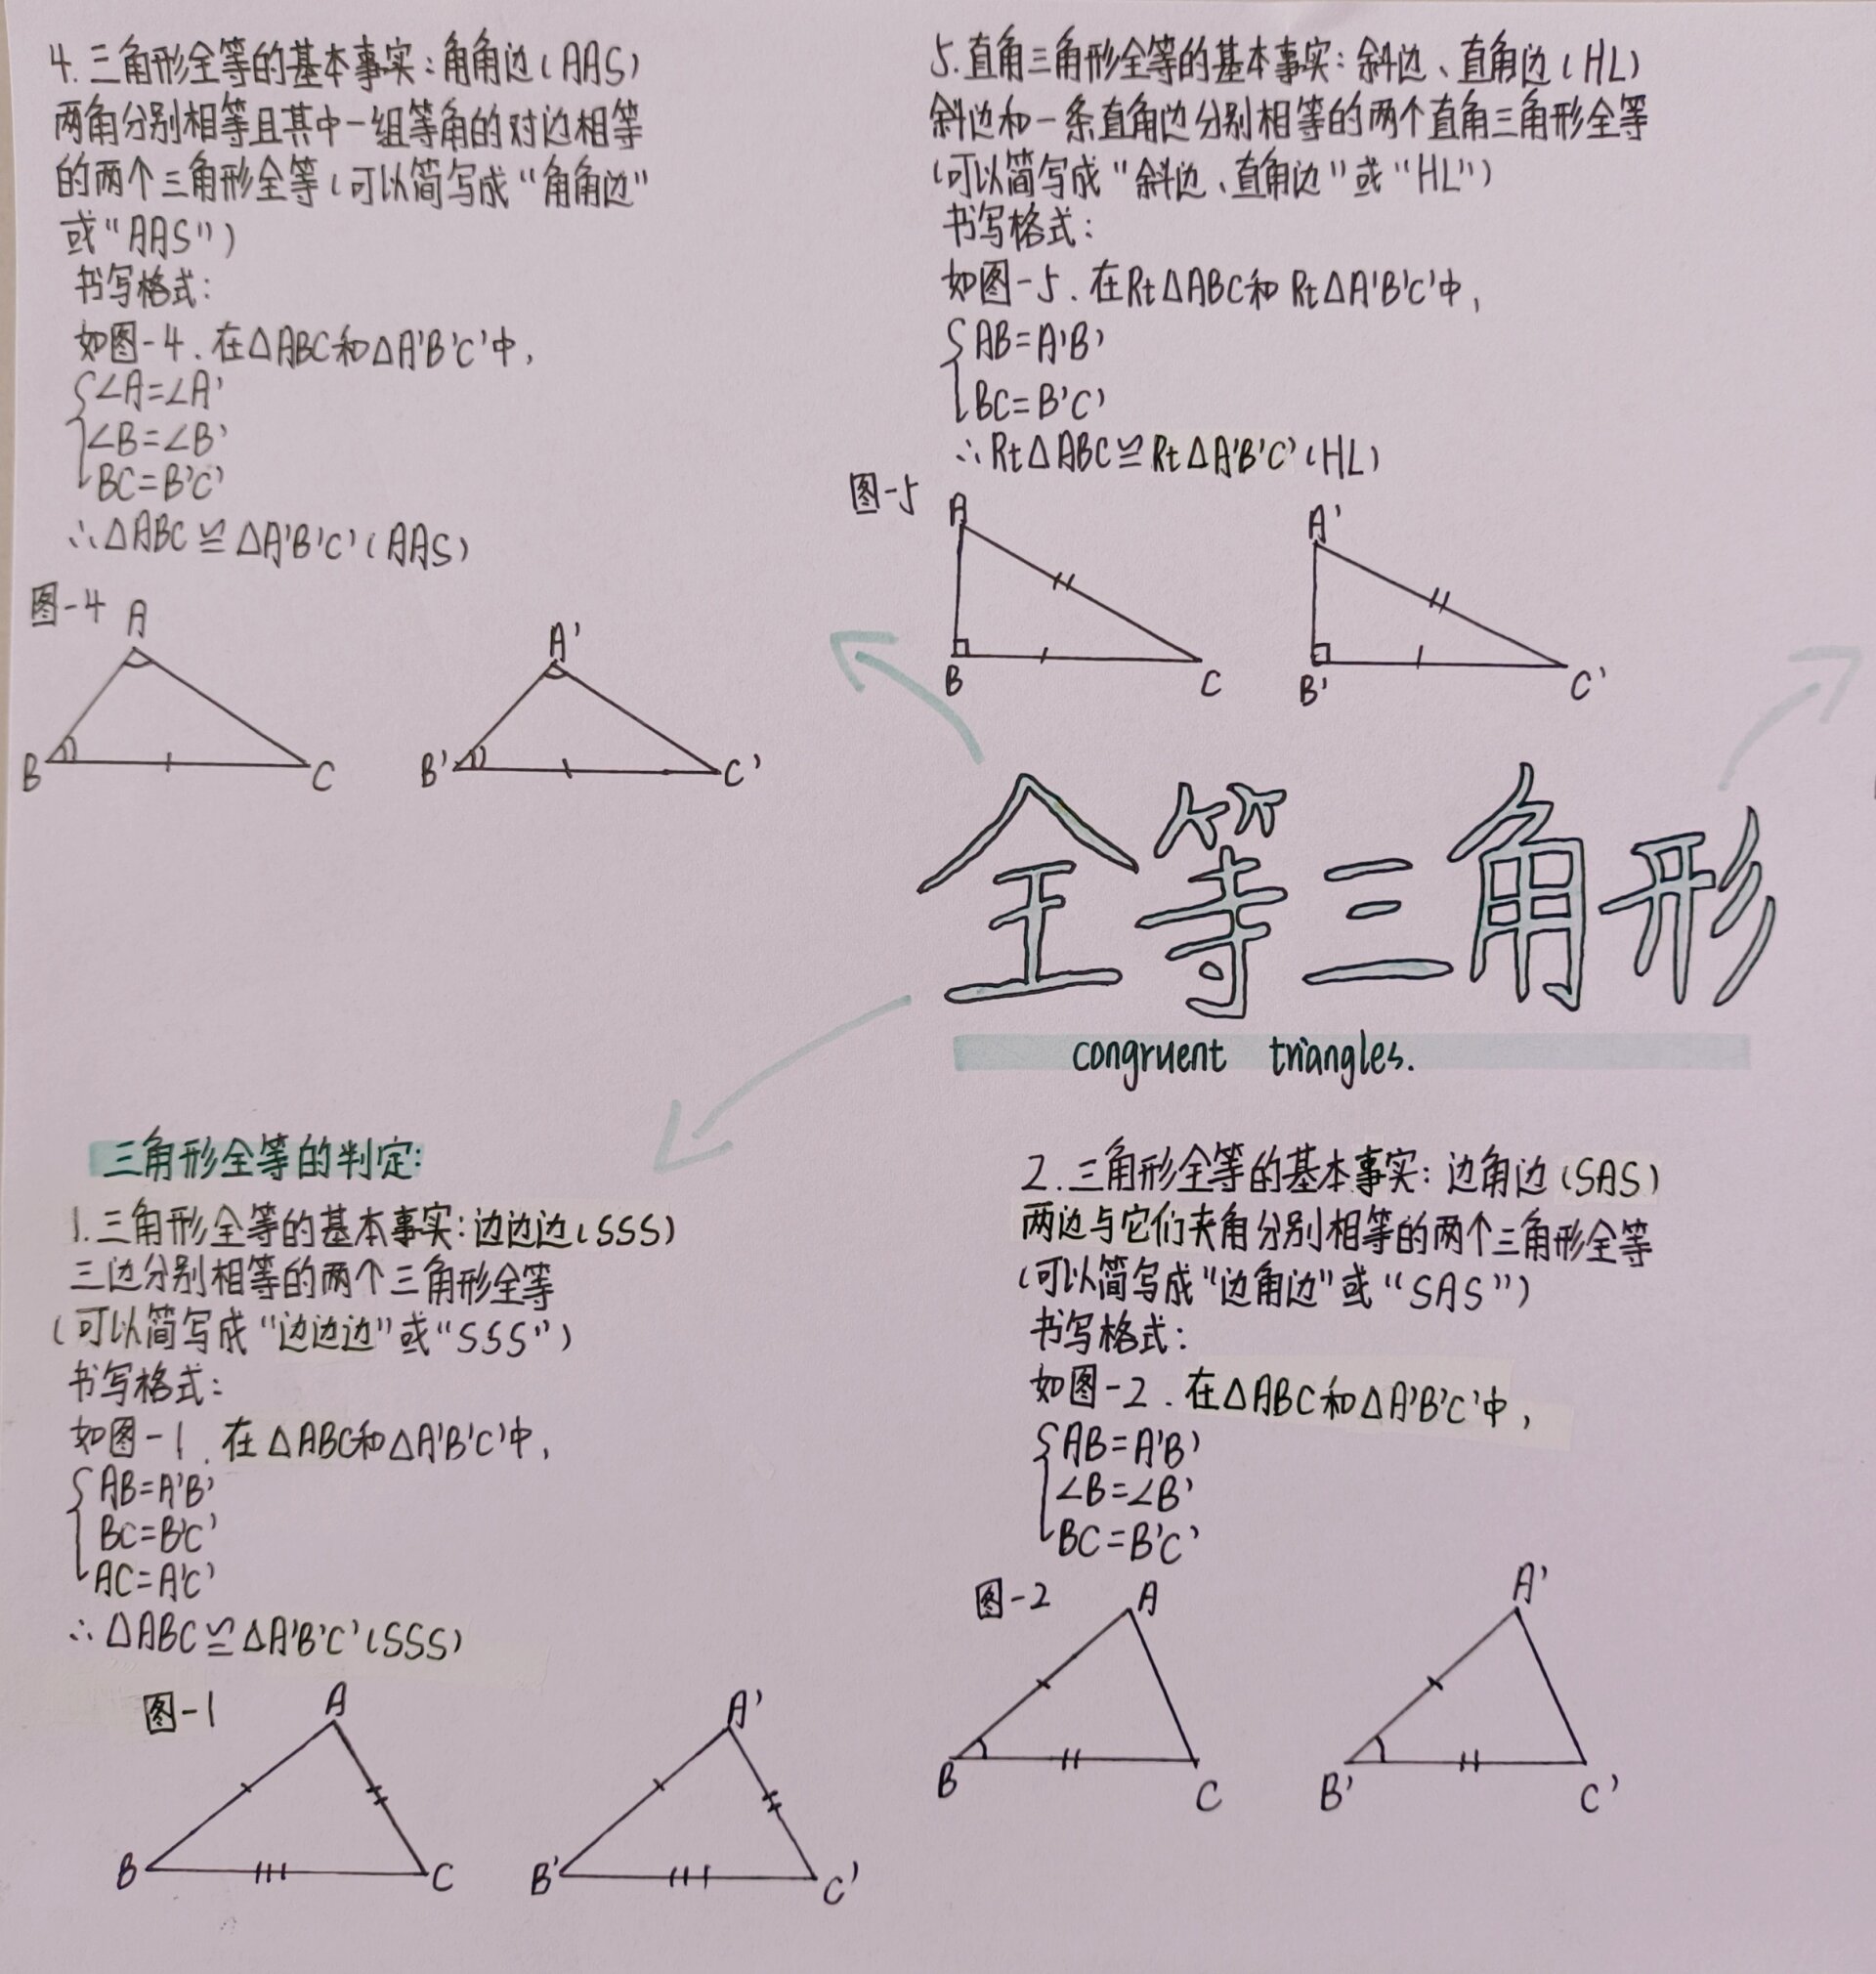 4.三角形全等的基本事实:角角边(AAS)
两角分别相等且其中一组等角的对边相等
的两个三角形全等(可以简写成“角角边”
或“AAS”)
书写格式:
如图-4.在△ABC和△A'B'C'中,
{∠A=∠A'
∠B=∠B'
BC=B'C'
∴△ABC≌△A'B'C'(AAS)
图-4
A
B
C
A'
B'
C'
5.直角三角形全等的基本事实:斜边、直角边(HL)
斜边和一条直角边分别相等的两个直角三角形全等
(可以简写成“斜边、直角边”或“HL”)
书写格式:
如图-5.在Rt△ABC和Rt△A'B'C'中,
{AB=A'B'
BC=B'C'
∴Rt△ABC≌Rt△A'B'C'(HL)
图-5
A
B
C
A'
B'
C'
全等三角形
congruent triangles.
三角形全等的判定:
1.三角形全等的基本事实:边边边(SSS)
三边分别相等的两个三角形全等
(可以简写成“边边边”或“SSS”)
书写格式:
如图-1.在△ABC和△A'B'C'中,
{AB=A'B'
BC=B'C'
AC=A'C'
∴△ABC≌△A'B'C'(SSS)
图-1
A
B
C
A'
B'
C'
2.三角形全等的基本事实:边角边(SAS)
两边与它们夹角分别相等的两个三角形全等
(可以简写成“边角边”或“SAS”)
书写格式:
如图-2.在△ABC和△A'B'C'中,
{AB=A'B'
∠B=∠B'
BC=B'C'
图-2
A
B
C
A'
B'
C'